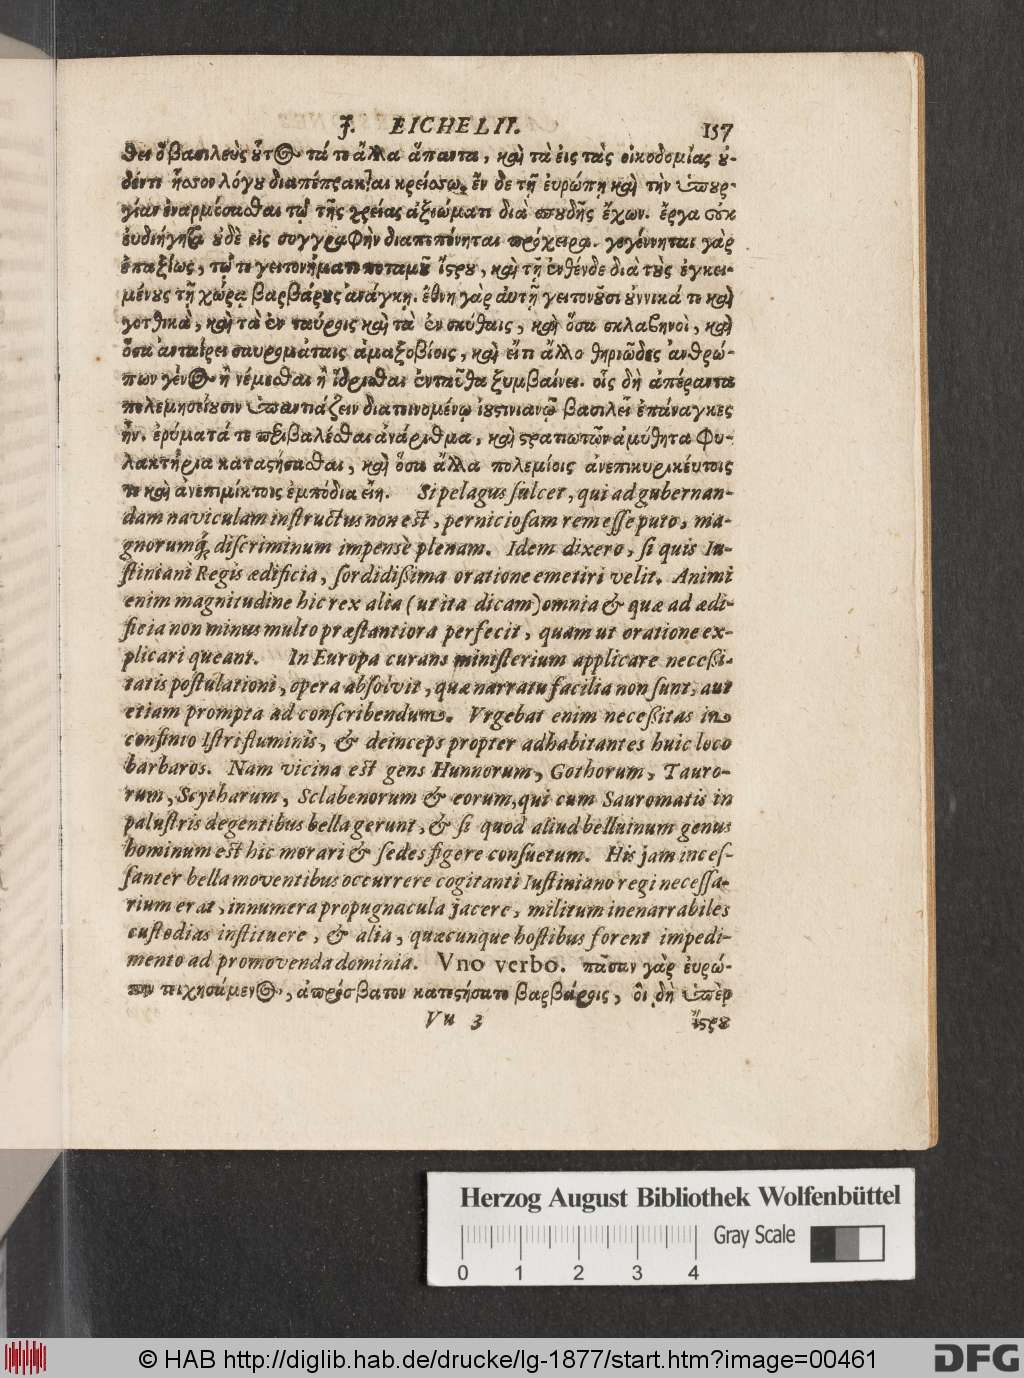 J. EICHELII. 157
θει ὁ βασιλεὺς οὗτος τά τε ἄλλα ἅπαντα, καὶ τὰ εἰς τὰς οἰκοδομίας οὐ-
δέν τι ἧσσον λόγου διαπέπρακται κρείσσω. ἐν δὲ τῇ εὐρώπῃ καὶ τὴν ὑπουρ-
γίαν ἐναρμόσασθαι τῷ τῆς χρείας ἀξιώματι διὰ σπουδῆς ἔχων. ἔργα οὐκ
εὐδιήγητα οὐδὲ εἰς συγγραφὴν διαπεπόνηται πρόχειρα. γεγένηνται γὰρ
ἐπαξίως, τῷ τε γειτονήματι ποταμοῦ ἴστρου, καὶ τῇ ἐνθένδε διὰ τοὺς ἐγκει-
μένους τῇ χώρᾳ βαρβάρους ἀνάγκῃ. ἔθνη γὰρ αὐτῇ γειτονοῦσι οὐννικά τε καὶ
γοτθικὰ, καὶ τὰ ἐν ταύροις καὶ τὰ ἐν σκύθαις, καὶ ὅσα σκλαβηνοὶ, καὶ
ὅσα ἀνταίρει σαυρομάταις ἁμαξοβίοις, καὶ εἴ τι ἄλλο θηριῶδες ἀνθρώ-
πων γένος ἢ νέμεσθαι ἢ ἱδρύσθαι ἐνταῦθα ξυμβαίνει. οἷς δὴ ἀπέραντα
πολεμησείουσιν ὑπαντιάζειν διατεινομένῳ ἰουστινιανῷ βασιλεῖ ἐπάναγκες
ἦν. ἐρύματά τε περιβαλέσθαι ἀνάριθμα, καὶ στρατιωτῶν ἀμύθητα φυ-
λακτήρια καταστήσασθαι, καὶ ὅσα ἄλλα πολεμίοις ἀνεπικηρυκεύτοις
τε καὶ ἀνεπιμίκτοις ἐμπόδια εἴη. Si pelagus sulcet, qui ad gubernan-
dam naviculam instructus non est, perniciosam rem esse puto, ma-
gnorumq; discriminum impensè plenam. Idem dixero, si quis Iu-
stiniani Regis ædificia, sordidißima oratione emetiri velit. Animi
enim magnitudine hic rex alia (ut ita dicam) omnia & quæ ad ædi-
ficia non minus multo præstantiora perfecit, quam ut oratione ex-
plicari queant. In Europa curans ministerium applicare neceßi-
tatis postulationi, opera absolvit, quæ narratu facilia non sunt, aut
etiam prompta ad conscribendum. Vrgebat enim neceßitas in
confinio Istri fluminis, & deinceps propter adhabitantes huic loco
barbaros. Nam vicina est gens Hunnorum, Gothorum, Tauro-
rum, Scytharum, Sclabenorum & eorum, qui cum Sauromatis in
palustris degentibus bella gerunt, & si quod aliud belluinum genus
hominum est hic morari & sedes figere consuetum. His jam inces-
santer bella moventibus occurrere cogitanti Iustiniano regi necessa-
rium erat, innumera propugnacula jacere, militum inenarrabiles
custodias instituere, & alia, quæcunque hostibus forent impedi-
mento ad promovenda dominia. Vno verbo. πᾶσαν γὰρ εὐρώ-
πην τειχησάμενος, ἀπρόσβατον κατεστήσατο βαρβάροις, οἳ δὴ ὑπὲρ
Vu 3 ἴστρου
Herzog August Bibliothek Wolfenbüttel
Gray Scale
0 1 2 3 4
© HAB http://diglib.hab.de/drucke/lg-1877/start.htm?image=00461
DFG